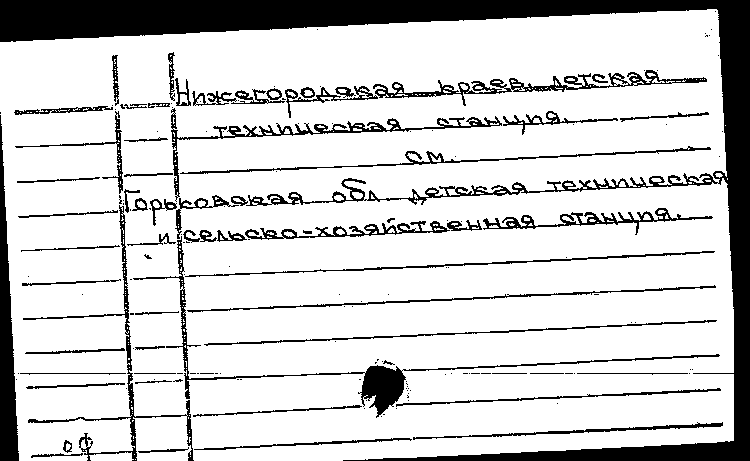 Нижегородская краев. детская
техническая станция.
см.
Горьковская обл детская техническая
и сельско-хозяйственная станция.
оф